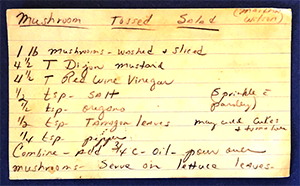 Mushroom Tossed Salad (Marilyn Wilson)
1 lb mushrooms - washed & sliced
4 1/2 T Dijon mustard
4 1/2 T Red Wine Vinegar
1/2 tsp - salt (Sprinkle =
1/2 tsp - oregano parsley)
1/2 tsp - Tarragon leaves may add cukes
1/4 tsp pepper + tomatoes
Combine - Add 3/4 C - Oil - pour over
mushrooms - Serve on lettuce leaves -